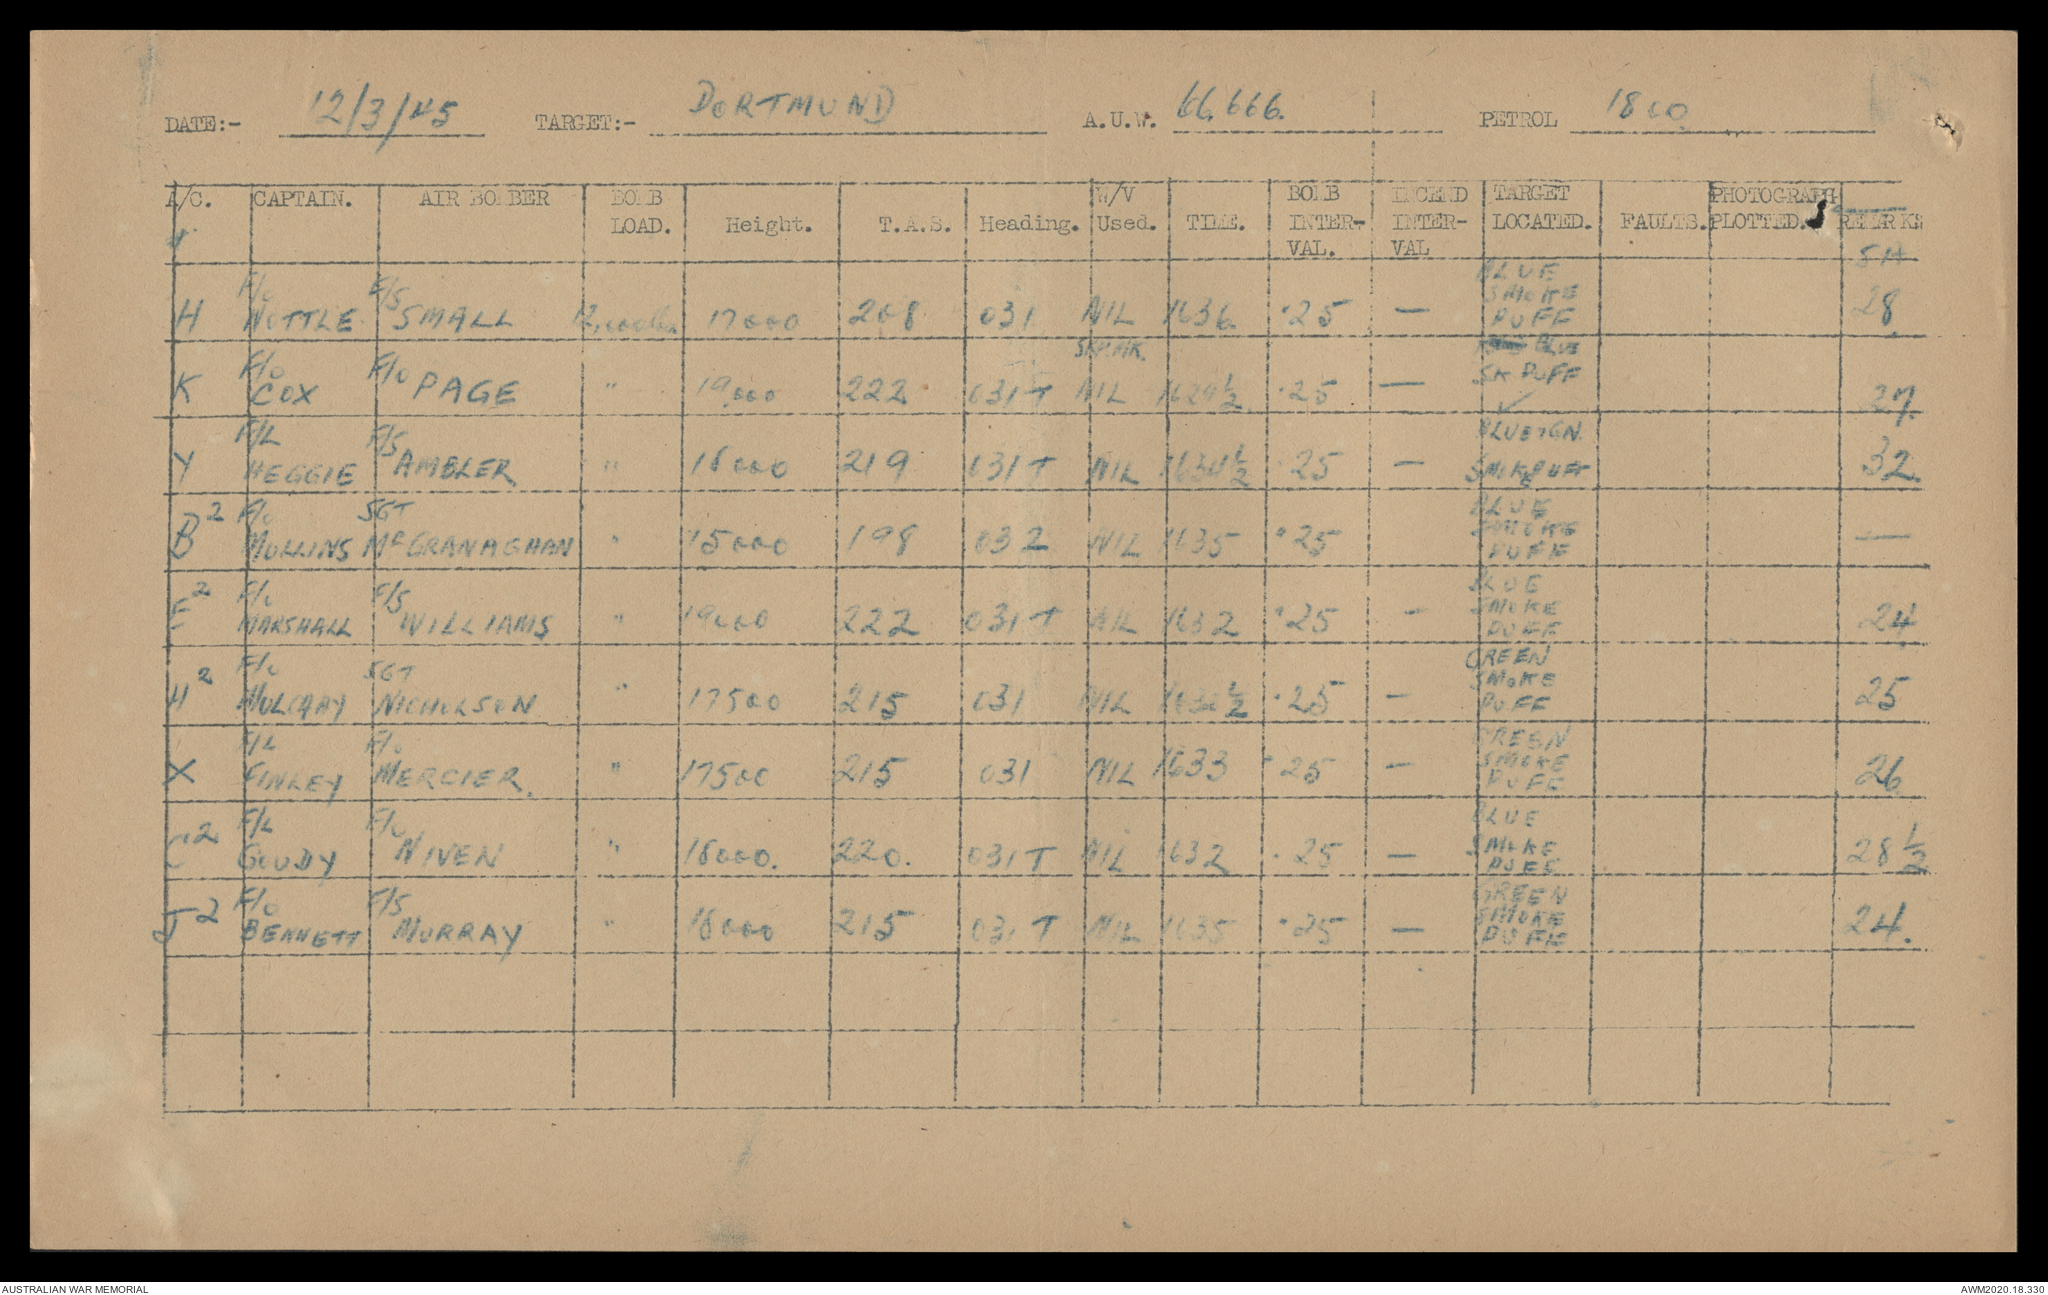 DATE:- 12/3/45 TARGET:- DORTMUND A.U.W. 66,666. PETROL 1800
A/C. CAPTAIN. AIR BOMBER BOMB LOAD. Height. T.A.S. Heading. W/V Used. TIME. BOMB INTER-VAL. INCEND INTER-VAL TARGET LOCATED. FAULTS. PHOTOGRAPH PLOTTED. REMARKS
SH
H F/O NOTTLE F/S SMALL 12,000lbs 17000 208 031 NIL 1636 .25 — BLUE SMOKE PUFF 28
K F/O COX F/O PAGE " 19,000 222 031T NIL .25 — BLUE SK PUFF ✓ 27.
Y F/L HEGGIE F/S AMBLER " 219 031T NIL 1634½ .25 — SMOKE PUFF 32
B² F/O MULLINS SGT McGRANAGHAN " 15000 198 032 NIL 1635 .25 BLUE SMOKE PUFF —
E² F/O MARSHALL F/S WILLIAMS " 19000 222 031T NIL 1632 .25 — BLUE SMOKE PUFF 24
H² F/O MULCAHY SGT NICHOLSON " 17500 215 031 NIL 1632½ .25 — GREEN SMOKE PUFF 25
X F/L FINLEY F/O MERCIER. " 17500 215 031 NIL 1633 .25 — GREEN SMOKE PUFF 26
C² F/L GOUDY F/O NIVEN " 18000. 220. 031T NIL 1632 .25 — BLUE SMOKE PUFF 28½
J² F/O BENNETT F/S MURRAY " 18000 215 031T NIL 1635 .25 — GREEN SMOKE PUFF 24.
AUSTRALIAN WAR MEMORIAL AWM2020.18.330